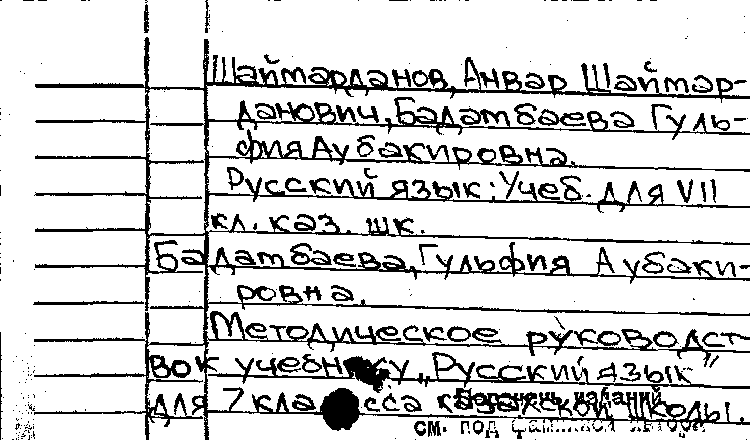 Шаймарданов, Анвар Шаймар-
данович, Бадамбаева Гуль-
фия Аубакировна.
Русский язык: Учеб. для VII
кл. каз. шк.
Бадамбаева, Гульфия Аубаки-
ровна.
Методическое руководст
во к учебнику „Русский язык"
для 7 класса казахской школы.
Перечень изданий
см. под фамилией автора